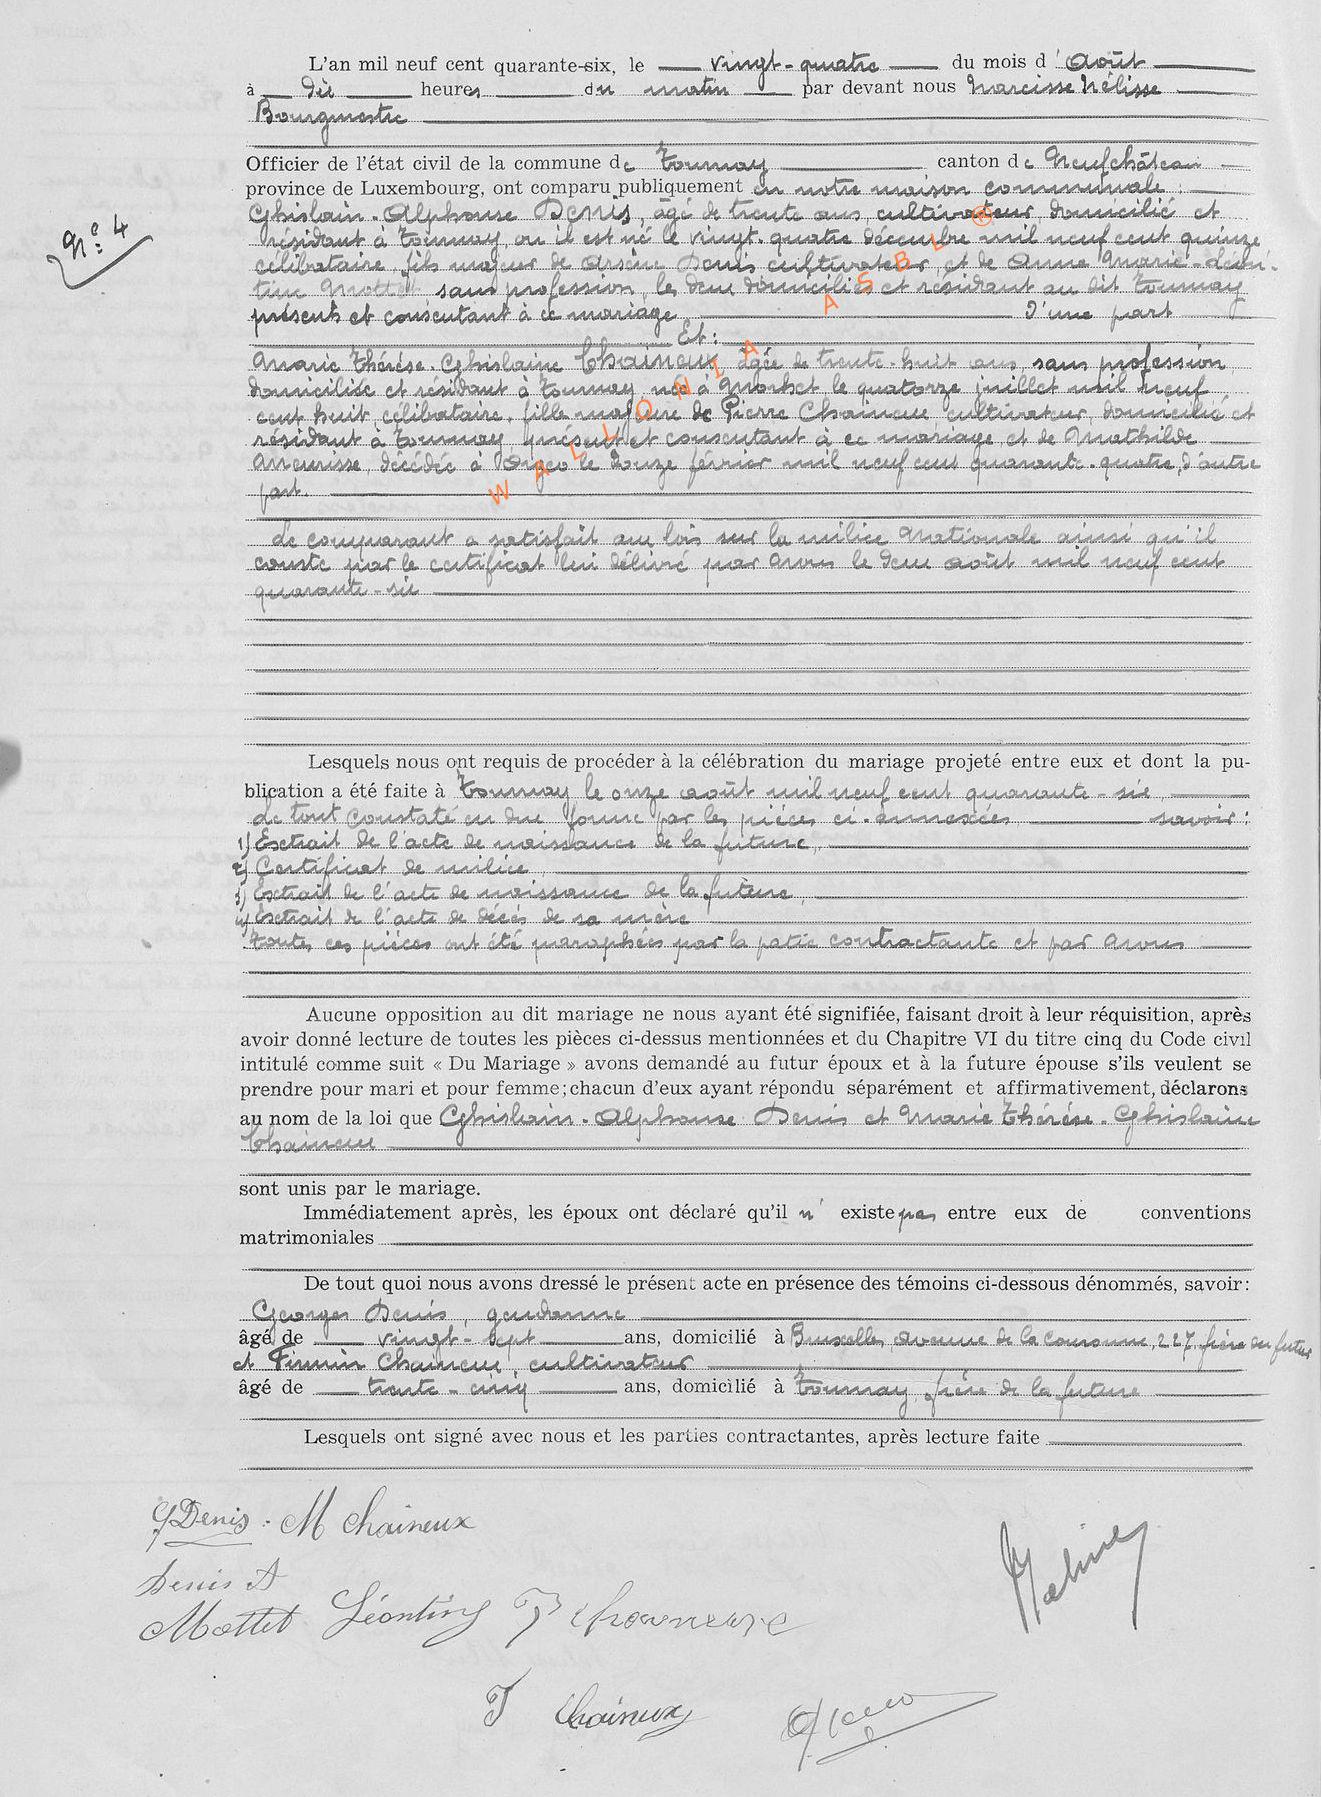 L'an mil neuf cent quarante-six, le vingt-quatre du mois d'Août
à dix heures du matin par devant nous Narcisse Hélisse
Bourgmestre
Officier de l'état civil de la commune de Tournay canton de Neufchâteau
province de Luxembourg, ont comparu publiquement en notre maison communale :
N° 4
Ghislain-Alphonse Denis, âgé de trente ans, cultivateur, domicilié et
résidant à Tournay, où il est né le vingt-quatre décembre mil neuf cent quinze,
célibataire, fils majeur de Arsène Denis cultivateur, et de Anne Marie-Léon-
tine Mottet sans profession, les deux domiciliés et résidant au dit Tournay
présents et consentant à ce mariage D'une part
Et :
Marie Thérèse-Ghislaine Chaineux âgée de trente-huit ans, sans profession,
domiciliée et résidant à Tournay, née à Morhet le quatorze juillet mil neuf
cent huit, célibataire, fille majeure de Pierre Chaineux cultivateur, domicilié et
résidant à Tournay présent et consentant à ce mariage et de Mathilde
Meurisse, décédée à le douze février mil neuf cent quarante-quatre, d'autre
part.
WALLONIA ASBL ®
Le comparant a satisfait aux lois sur la milice Nationale ainsi qu'il
conste par le certificat lui délivré par Nous le deux août mil neuf cent
quarante-six
Lesquels nous ont requis de procéder à la célébration du mariage projeté entre eux et dont la pu-
blication a été faite à Tournay le onze août mil neuf cent quarante-six,
Le tout constaté en due forme par les pièces ci-annexées, savoir :
1) Extrait de l'acte de naissance de la future,
2) Certificat de milice,
3) Extrait de l'acte de naissance de la future,
4) Extrait de l'acte de décès de sa mère
Toutes ces pièces ont été paraphées par la patie contractante et par Nous
Aucune opposition au dit mariage ne nous ayant été signifiée, faisant droit à leur réquisition, après
avoir donné lecture de toutes les pièces ci-dessus mentionnées et du Chapitre VI du titre cinq du Code civil
intitulé comme suit « Du Mariage » avons demandé au futur époux et à la future épouse s'ils veulent se
prendre pour mari et pour femme; chacun d'eux ayant répondu séparément et affirmativement, déclarons
au nom de la loi que Ghislain-Alphonse Denis et Marie Thérèse-Ghislaine
Chaineux
sont unis par le mariage.
Immédiatement après, les époux ont déclaré qu'il n' existe pas entre eux de conventions
matrimoniales
De tout quoi nous avons dressé le présent acte en présence des témoins ci-dessous dénommés, savoir :
Georges Denis, gendarme
âgé de vingt-sept ans, domicilié à Bruxelles, avenue de la couronne, 227, frère du futur
et Firmin Chaineux, cultivateur
âgé de trente-cinq ans, domicilié à Tournay, frère de la future
Lesquels ont signé avec nous et les parties contractantes, après lecture faite
G Denis. M Chaineux
Denis A
Mottet Léontine P Chaineux
F Chaineux